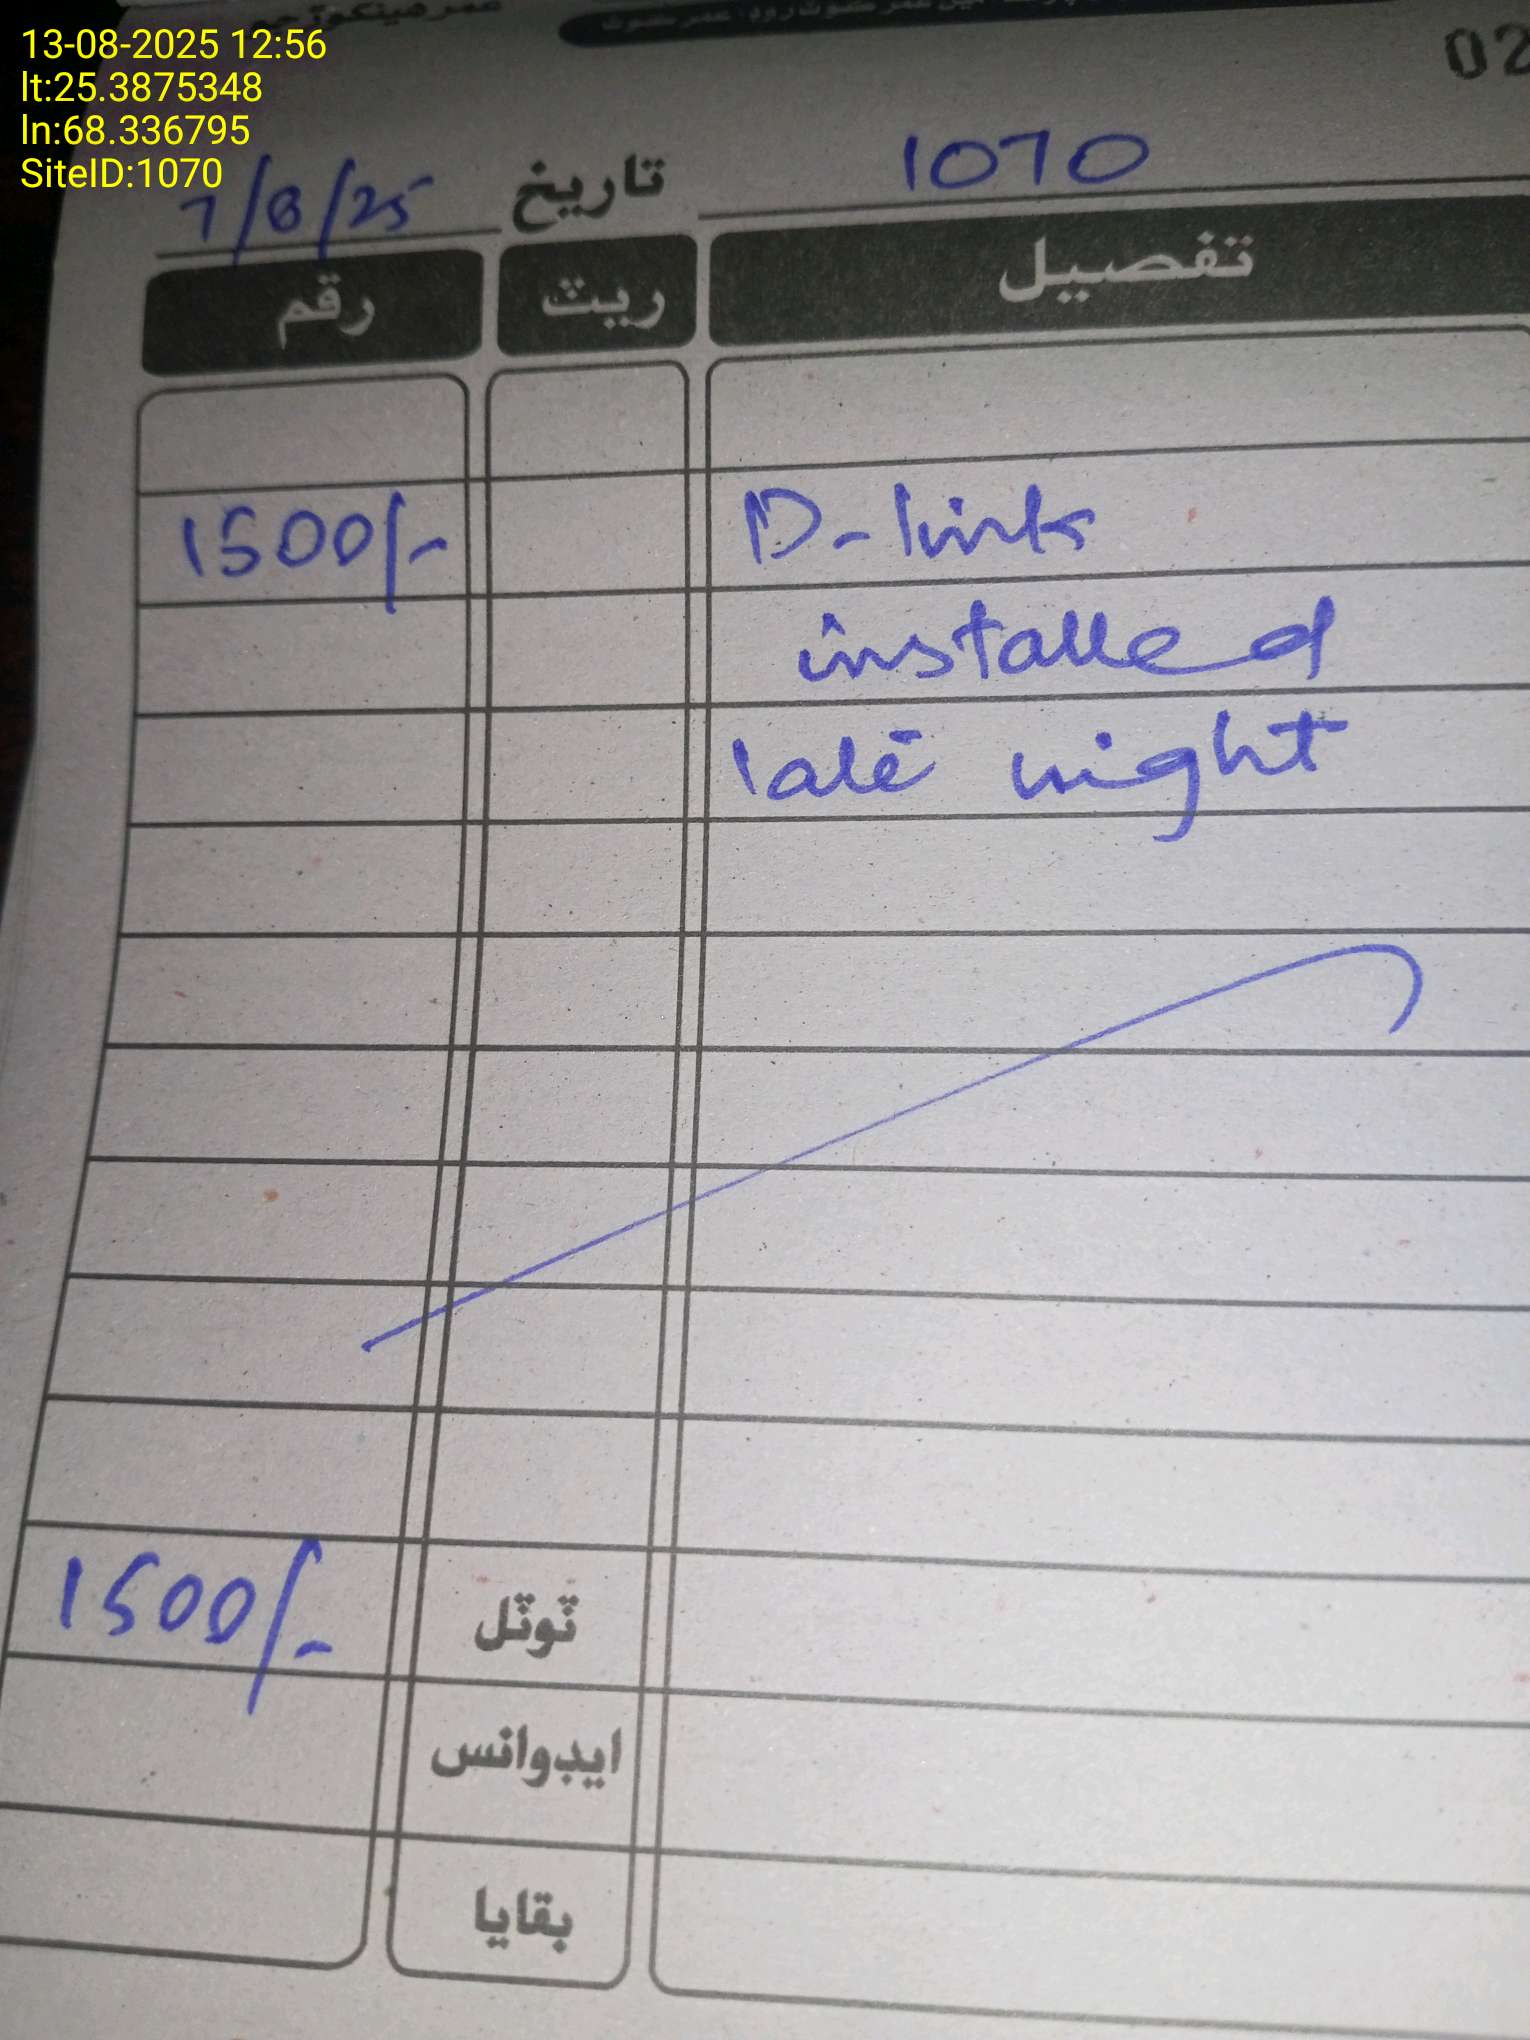 13-08-2025 12:56
lt:25.3875348
ln:68.336795
SiteID:1070
02
1070
تاریخ 7/8/25
تفصیل ریٹ رقم
D-link 1500/-
installed
late night
ٹوٹل 1500/-
ایڈوانس
بقایا